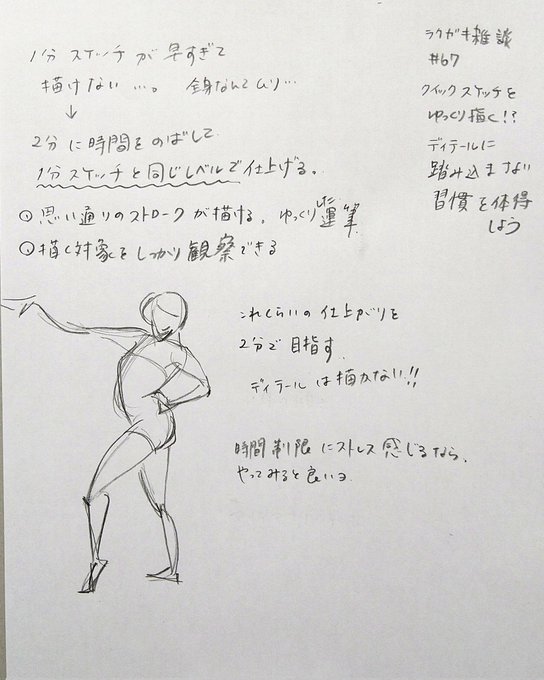 1分スケッチが早すぎて
描けない…。 全身なんてムリ…
↓
2分に時間をのばして
1分スケッチと同じレベルで仕上げる。
○思い通りのストロークが描ける。ゆっくりした運筆
○描く対象をしっかり観察できる
これくらいの仕上がりを
2分で目指す
ディテールは描かない!!
時間制限にストレス感じるなら、
やってみると良いヨ
ラクガキ雑談
#67
クイックスケッチを
ゆっくり描く!?
ディテールに
踏み込まない
習慣を体得
しよう